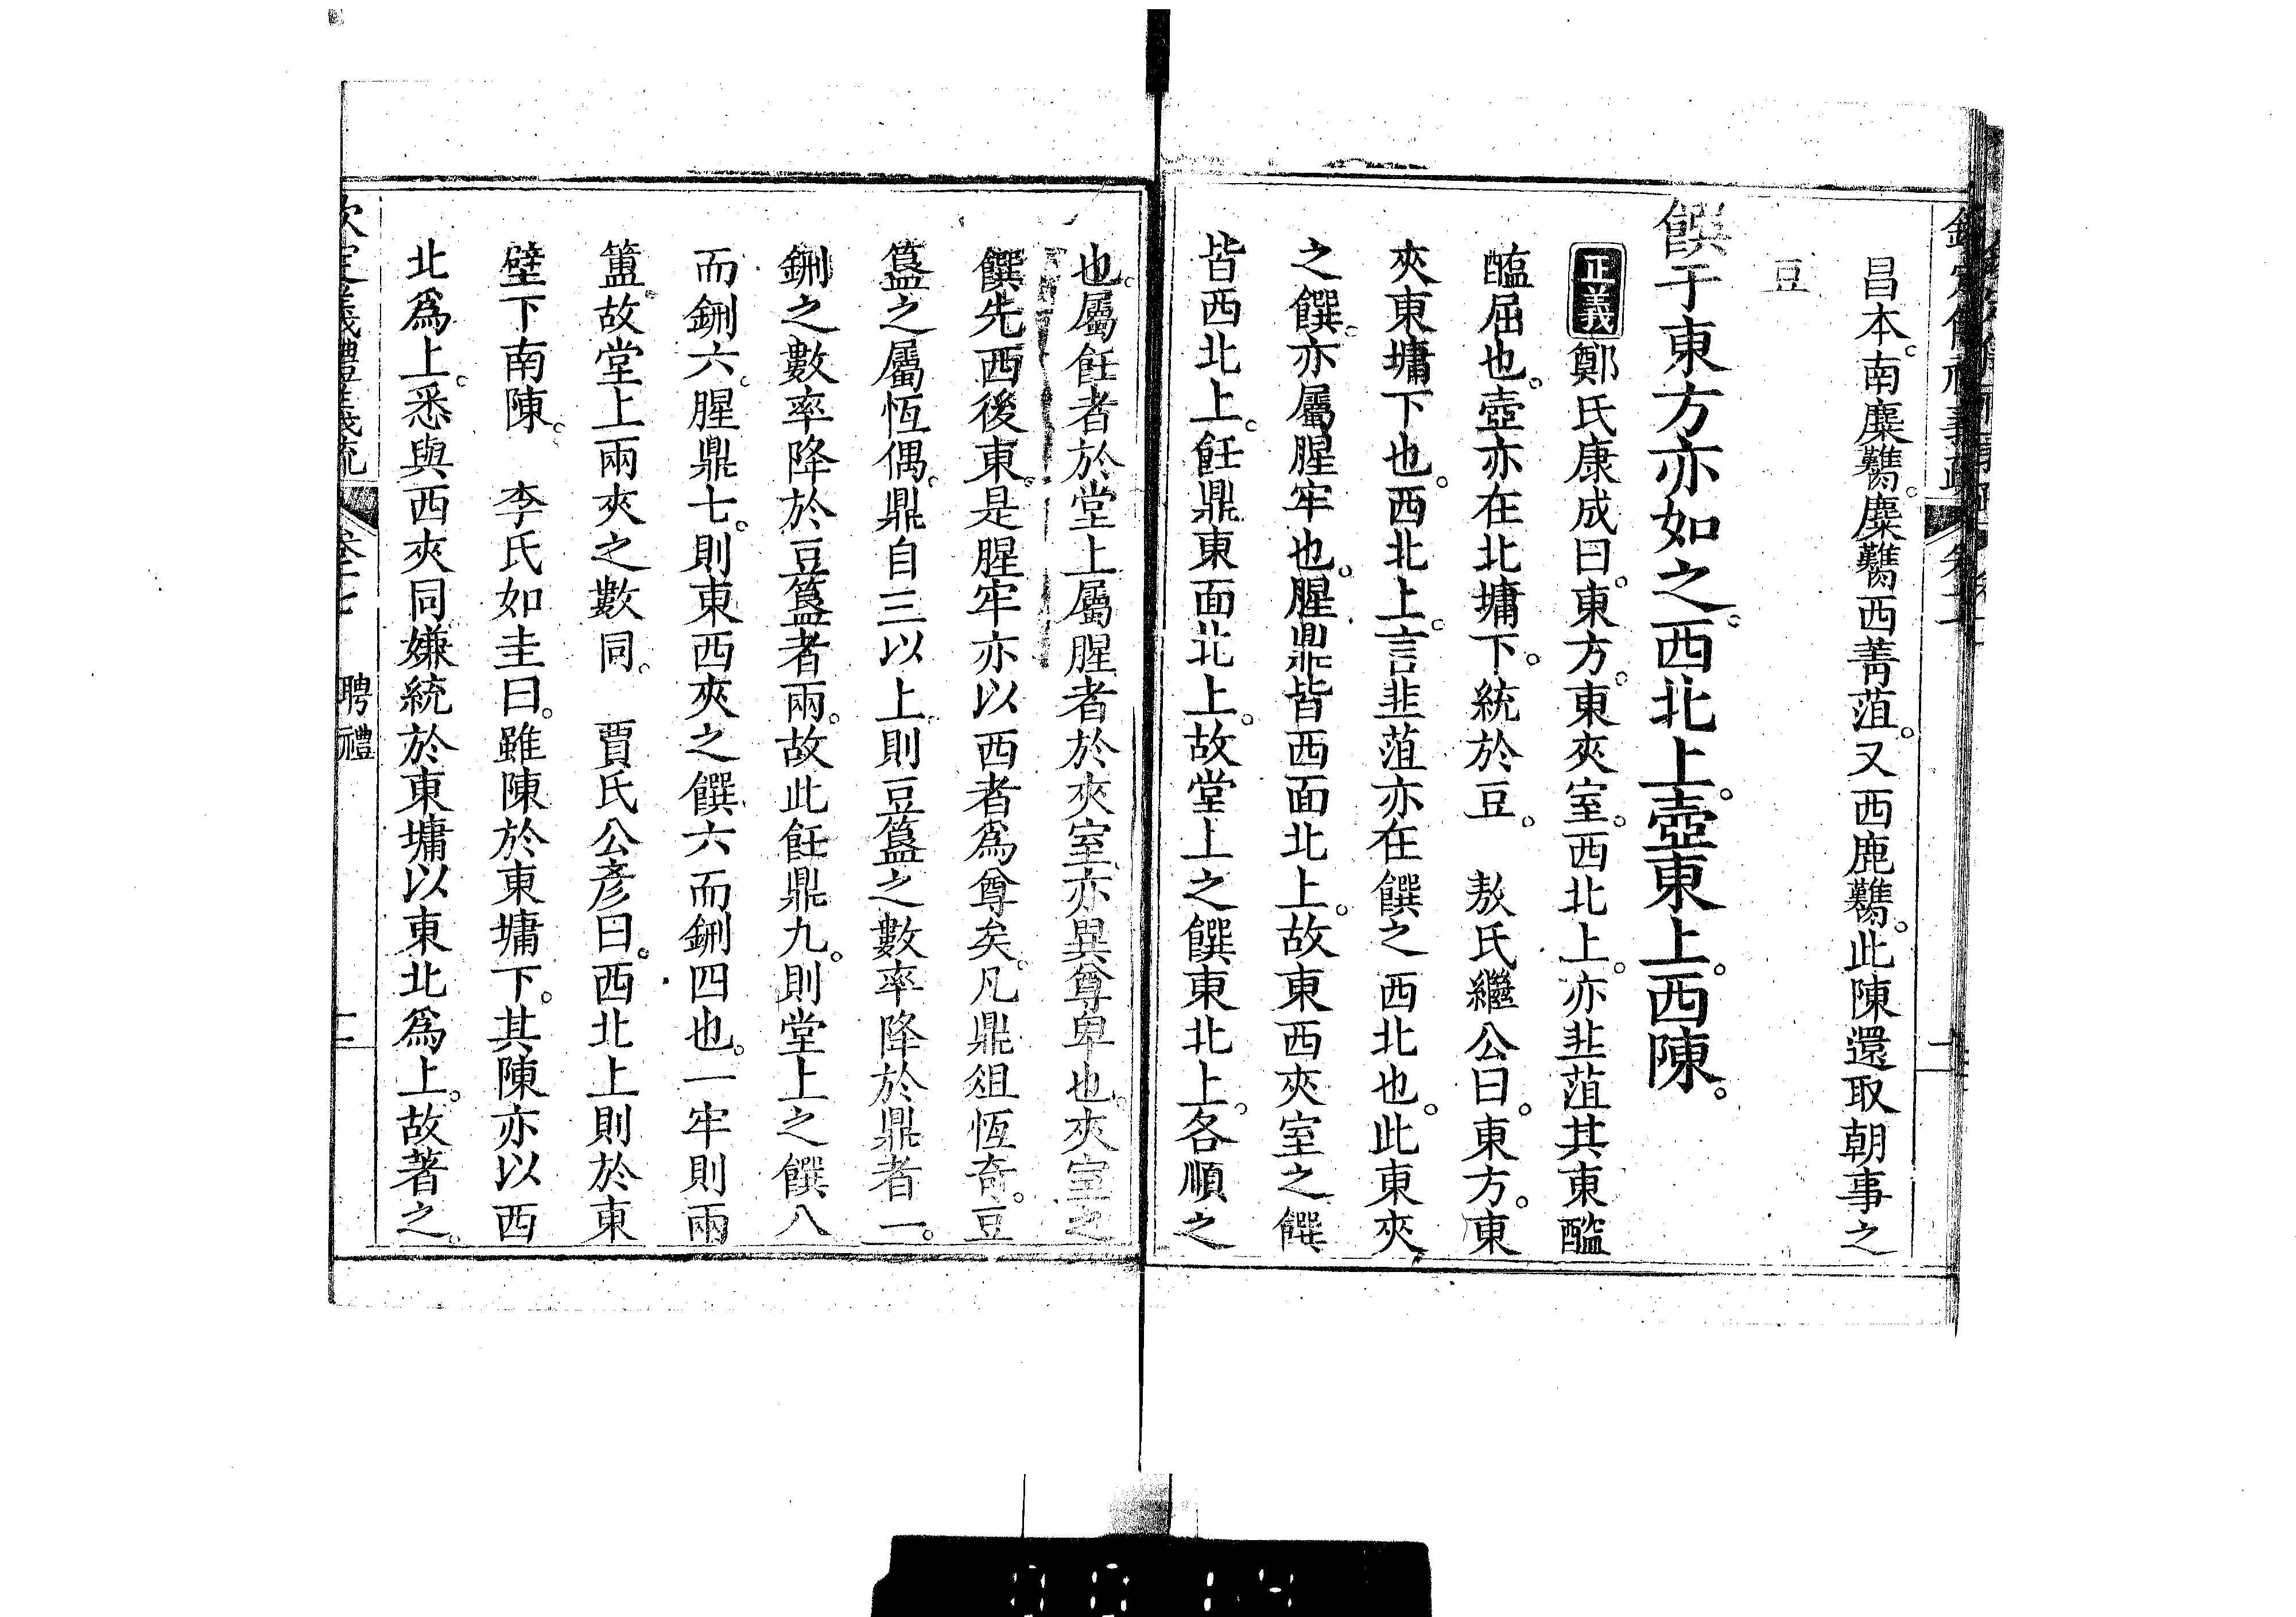 昌本。南麋臡。麋臡西菁菹。又西鹿臡。此陳還取朝事之
豆
饌于東方亦如之。西北上。壺東上。西陳。
正義鄭氏康成曰。東方。東夾室。西北上。亦韭菹其東醓
醢屈也。壺亦在北墉下。統於豆。 敖氏繼公曰。東方。東
夾東墉下也。西北上。言韭菹亦在饌之西北也。此東夾
之饌。亦屬腥牢也。腥鼎皆西面北上。故東西夾室之饌
皆西北上。飪鼎東面北上。故堂上之饌東北上。各順之
也。屬飪者於堂上屬腥者於夾室。亦異尊卑也。夾室之
饌先西後東。是腥牢亦以西者為尊矣。凡鼎俎恆奇。豆
簋之屬恆偶。鼎自三以上。則豆簋之數率降於鼎者一。
鉶之數率降於豆簋者兩。故此飪鼎九。則堂上之饌八
而鉶六。腥鼎七。則東西夾之饌六而鉶四也。一牢則兩
簠。故堂上兩夾之數同。 賈氏公彥曰。西北上則於東
壁下南陳。 李氏如圭曰。雖陳於東墉下。其陳亦以西
北為上。悉與西夾同嫌統於東墉以東北為上。故著之。
聘禮